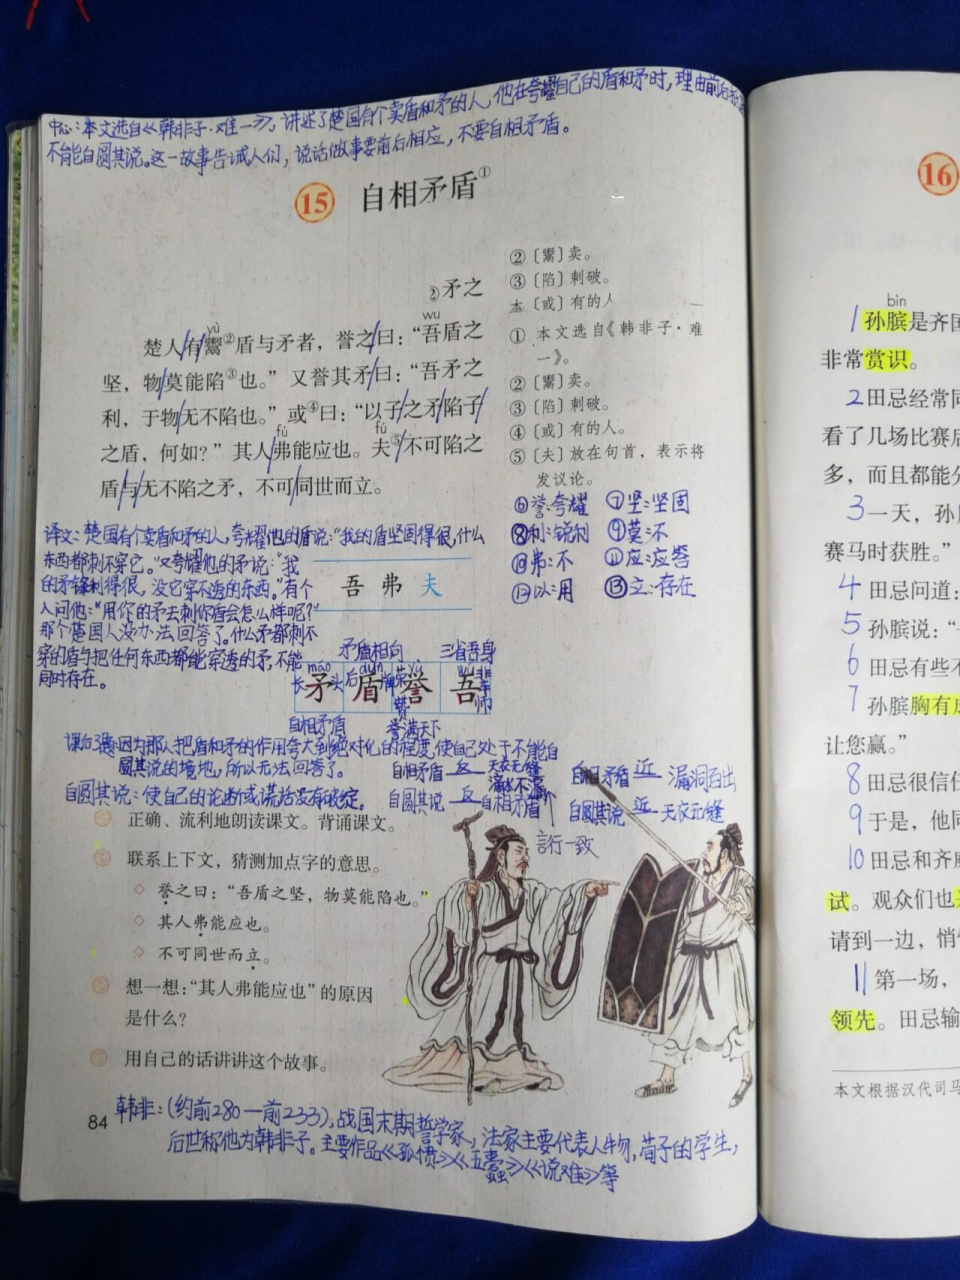 中心：本文选自《韩非子·难一》，讲述了楚国有个卖盾和矛的人，他在夸耀自己的盾和矛时，理由前后
不能自圆其说。这一故事告诫人们，说话做事要前后相应，不要自相矛盾。
15 自相矛盾①
②矛之
yù wú
楚人有鬻②盾与矛者，誉之曰：“吾盾之
坚，物莫能陷③也。”又誉其矛曰：“吾矛之
利，于物无不陷也。”或④曰：“以子之矛陷子
fú fú
之盾，何如？”其人弗能应也。夫⑤不可陷之
盾与无不陷之矛，不可同世而立。
②〔鬻〕卖。
③〔陷〕刺破。
本〔或〕有的人
① 本文选自《韩非子·难
一》。
②〔鬻〕卖。
③〔陷〕刺破。
④〔或〕有的人。
⑤〔夫〕放在句首，表示将
发议论。
⑥誉：夸耀 ⑦坚：坚固
⑧利：锐利 ⑨莫：不
⑩弗：不 ⑪应：应答
⑫以：用 ⑬立：存在
译文：楚国有个卖盾和矛的人，夸耀他的盾说：“我的盾坚固得很，什么
东西都刺不穿它。”又夸耀他的矛说：“我
的矛锋利得很，没它穿不透的东西。”有个
人问他：“用你的矛去刺你盾会怎么样呢？”
那个楚国人没办法回答了。什么矛都刺不
穿的盾与把任何东西都能穿透的矛，不能
同时存在。
吾 弗 夫
矛盾相向 三省吾身
máo dùn yù wú
长矛头 后盾牌 荣誉 吾
赞
自相矛盾 誉满天下
课后3题：因为那人把盾和矛的作用夸大到绝对化的程度，使自己处于不能自
圆其说的境地，所以无法回答了。
自相矛盾 反 天衣无缝
滴水不漏
自相矛盾 近 漏洞百出
自圆其说：使自己的论断或谎话没有破绽。
自圆其说 反 自相矛盾
自圆其说 近 天衣无缝
言行一致
正确、流利地朗读课文。背诵课文。
联系上下文，猜测加点字的意思。
◇ 誉之曰：“吾盾之坚，物莫能陷也。”
◇ 其人弗能应也。
◇ 不可同世而立。
想一想：“其人弗能应也”的原因
是什么？
用自己的话讲讲这个故事。
84
韩非：(约前280—前233)，战国末期哲学家，法家主要代表人物，荀子的学生，
后世称他为韩非子。主要作品《孤愤》《五蠹》《说难》等
16
bìn
1 孙膑是齐国
非常赏识。
2 田忌经常同
看了几场比赛后
多，而且都能分
3 一天，孙膑
赛马时获胜。”
4 田忌问道：
5 孙膑说：“
6 田忌有些不
7 孙膑胸有成
让您赢。”
8 田忌很信任
9 于是，他同
10 田忌和齐威
试。观众们也
请到一边，悄悄
11 第一场，
领先。田忌输
本文根据汉代司马